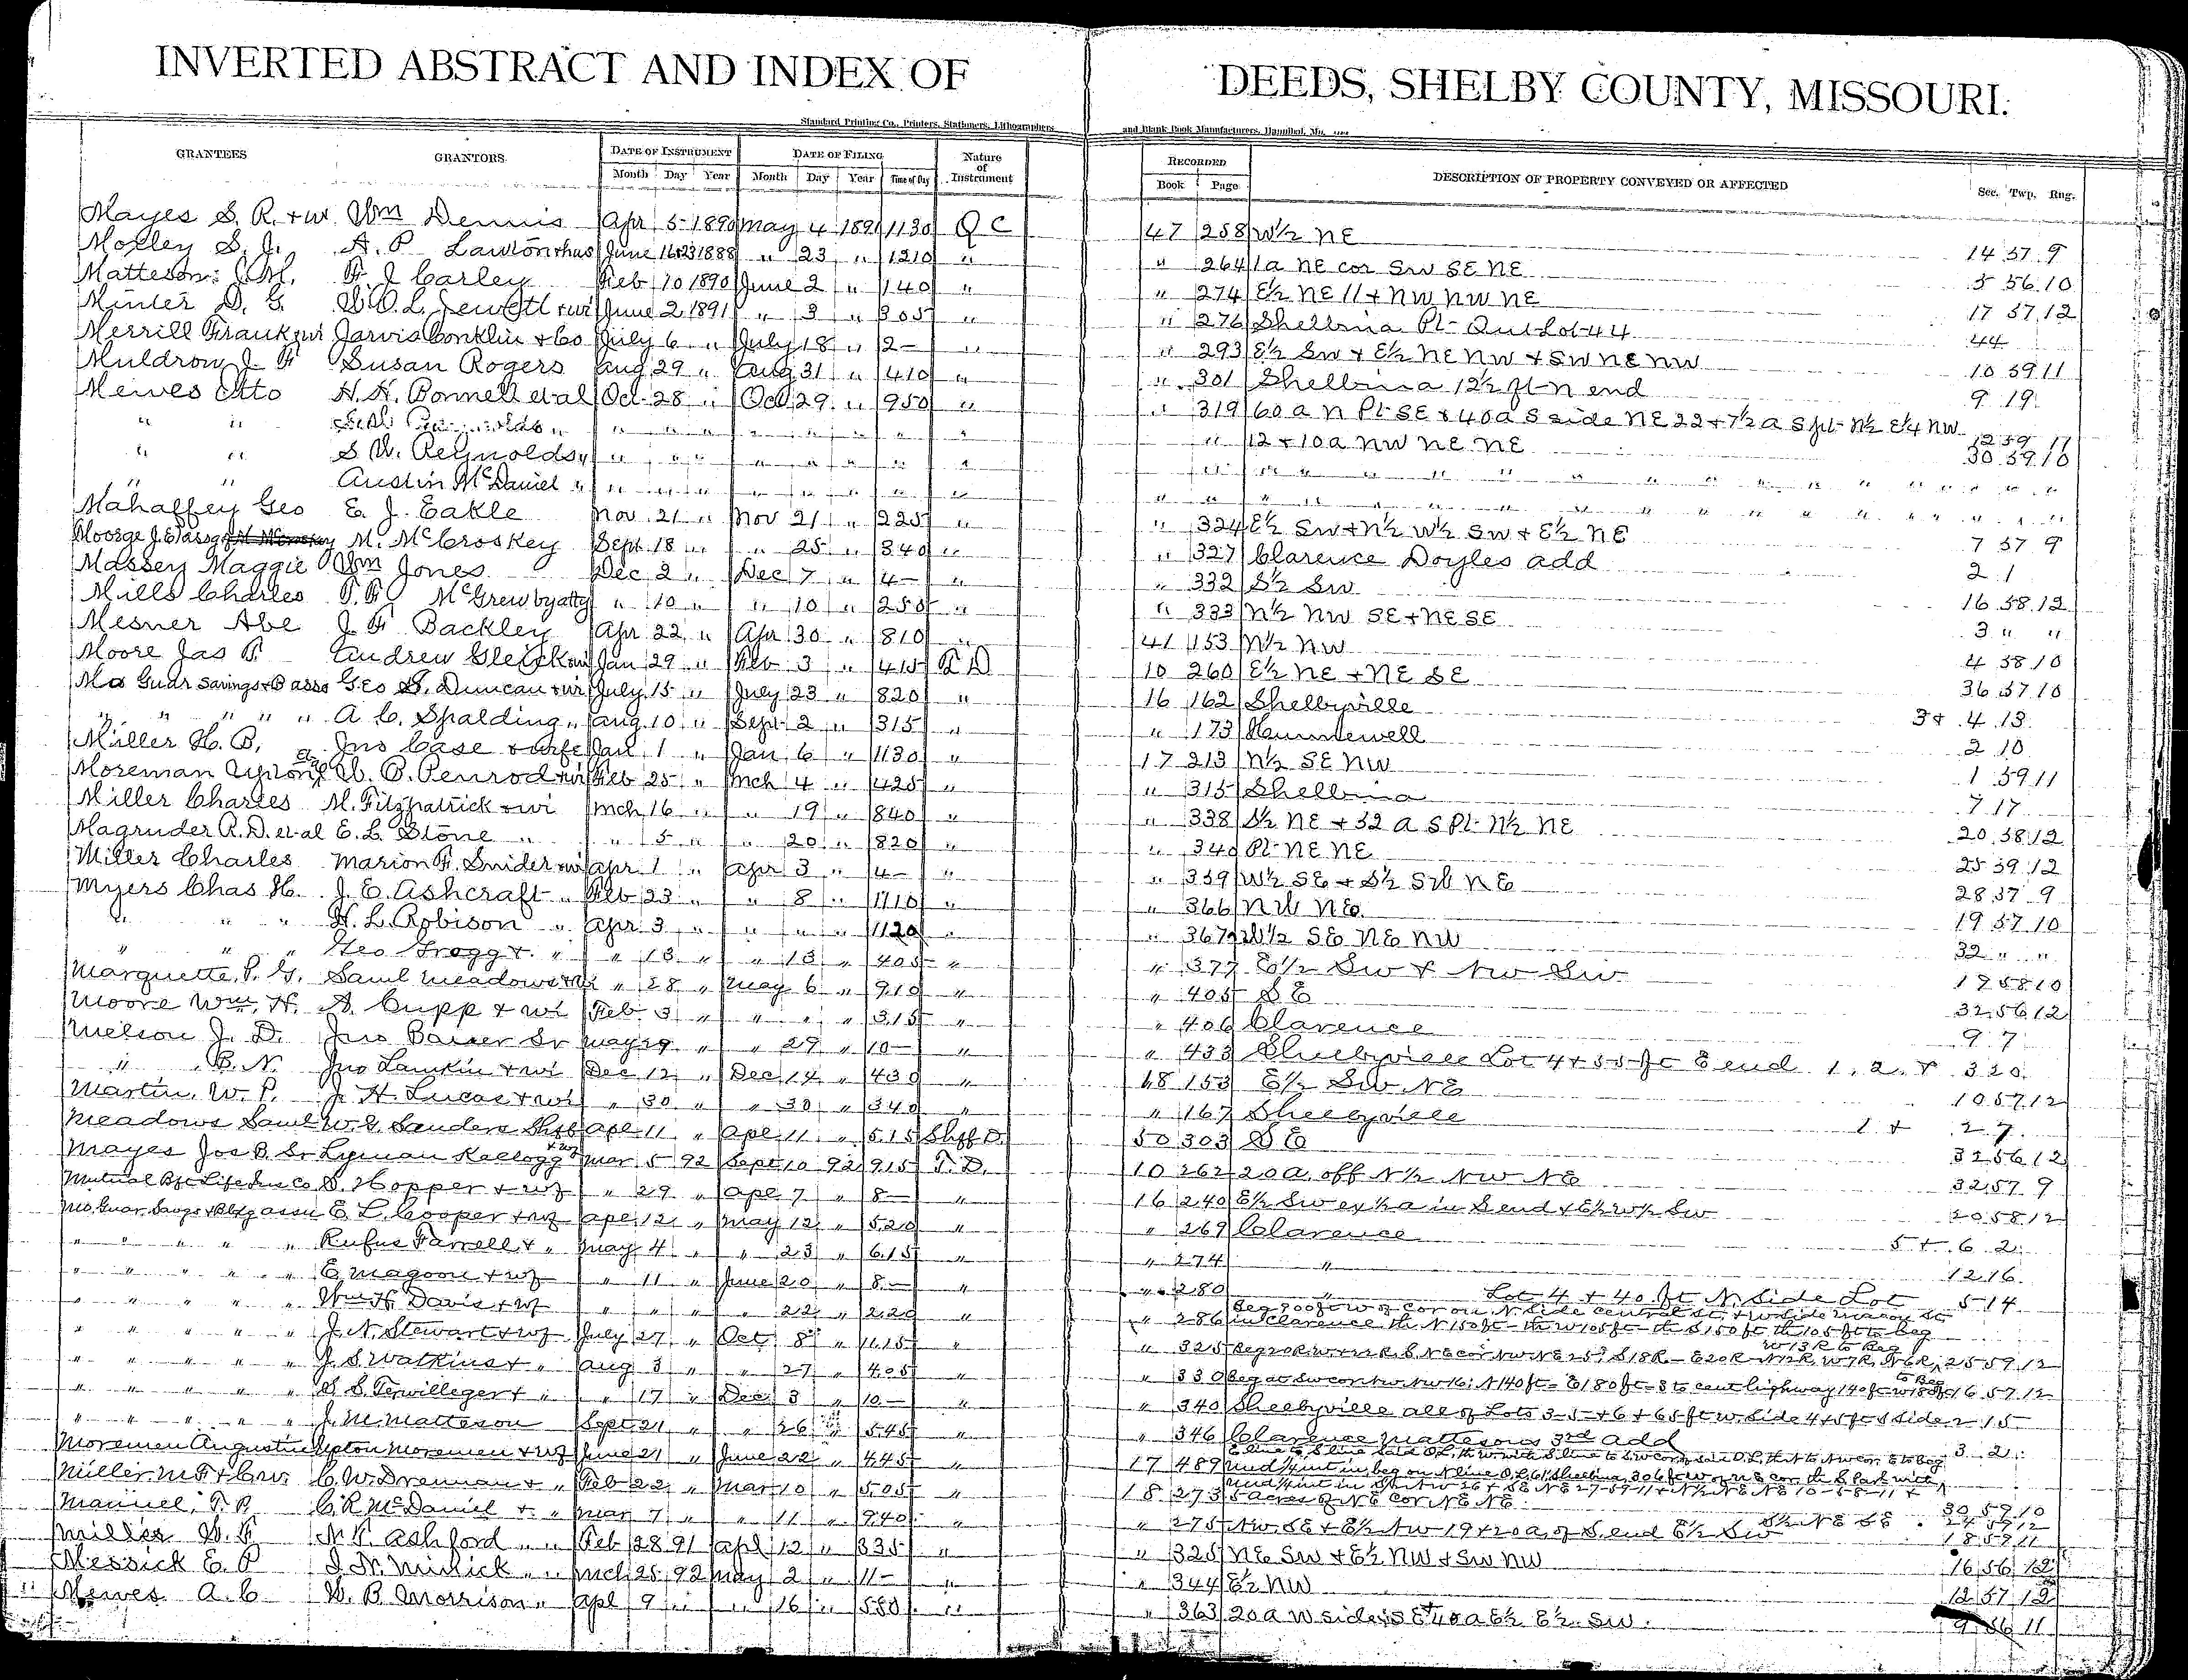 INVERTED ABSTRACT AND INDEX OF DEEDS, SHELBY COUNTY, MISSOURI.
Standard Printing Co., Printers, Stationers, Lithographers and Blank Book Manufacturers, Hannibal, Mo.
GRANTEES GRANTORS DATE OF INSTRUMENT DATE OF FILING Nature of Instrument RECORDED DESCRIPTION OF PROPERTY CONVEYED OR AFFECTED Sec. Twp. Rng.
Month Day Year Month Day Year Time of Day Book Page
Mayes S. R. + w. Wm Dennis Apr 5 1890 May 4 1891 1130 Q C 47 258 W½ NE 14 57 9
Moxley S. J. A. P. Lawton + hus June 16+23 1888 " 23 " 1210 " " 264 1a NE cor SW SE NE 5 56 10
Matteson J. M. F. J. Carley Feb 10 1890 June 2 " 140 " " 274 E½ NE 11 + NW NW NE 17 57 12
Minter D. G. W. O. L. Jewett + wi June 2 1891 " 3 " 305 " " 276 Shelbina Pt Out Lot 44 44
Merrill Frank + wi Jarvis Conklin + Co July 6 " July 18 " 2– " " 293 E½ SW + E½ NE NW + SW NE NW 10 59 11
Muldrow J. F. Susan Rogers Aug 29 " Aug 31 " 410 " " 301 Shelbina 12½ ft N end 9 19
Mewes Otto H. H. Bonnell et al Oct 28 " Oct 29 " 950 " " 319 60 a N Pt SE + 40 a S side NE 22 + 7½ a S pt N½ E¼ NW 12 59 11
" " " " " " " " " " " 12 + 10 a NW NE NE 30 59 10
" " S W. Reynolds " " " " " " " "
" " Austin McDaniel " " " " " " " "
Mahaffey Geo E. J. Eakle Nov 21 " Nov 21 " 225 " " 324 E½ SW + N½ W½ SW + E½ NE 7 57 9
M. McCroskey Sept 18 " " 25 " 840 " " 327 Clarence Doyles add 2 1
Massey Maggie Wm Jones Dec 2 " Dec 7 " 4– " " 332 S½ SW 16 58 12
Mills Charles P. F. McGrew by atty " 10 " " 10 " 250 " " 333 N½ NW SE + NE SE 3 " "
Mesner Abe J. F. Backley Apr 22 " Apr 30 " 810 " 41 153 N½ NW 4 58 10
Moore Jas P. Andrew Gleick + wi Jan 29 " Feb 3 " 415 T D 10 260 E½ NE + NE SE 36 57 10
Mo Guar Savings + B assn Geo S. Duncan + wi July 15 " July 23 " 820 " 16 162 Shelbyville 3 + 4 13
" " " " " A. C. Spalding " Aug 10 " Sept 2 " 315 " " 173 Hunnewell 2 10
Miller H. B. Jno Case + wife Jan 1 " Jan 6 " 1130 " 17 213 N½ SE NW 1 59 11
Moreman Upton et al W. B. Penrod + wi Feb 25 " Mch 4 " 425 " " 315 Shelbina 7 17
Miller Charles M. Fitzpatrick + wi Mch 16 " " 19 " 840 " " 338 S½ NE + 32 a S Pt N½ NE 20 58 12
Magruder R. D. et al E. L. Stone " " 5 " " 20 " 820 " " 340 Pt NE NE 25 59 12
Miller Charles Marion F. Snider + wi Apr 1 " Apr 3 " 4– " " 359 W½ SE + S½ SW NE 28 57 9
Myers Chas H. J. E. Ashcraft " Feb 23 " " 8 " 1110 " " 366 NW NE 19 57 10
" " " H. L. Robison " Apr 3 " " " " 1120 " " 367 W½ SE NE NW 32 " "
" " " Geo Gregg + " " 13 " " 13 " 405 " " 377 E½ SW + NW SW 19 58 10
Marquette P. G. Saml Meadows + wi " 28 " May 6 " 910 " " 405 SE 32 56 12
Moore Wm. H. S. Cupp + wi Feb 3 " " " " 315 " " 406 Clarence 9 7
Melson J. D. Jno Barker Sr May 29 " " 29 " 10– " " 433 Shelbyville Lot 4 + 55 ft E end 1, 2, + 3 20
" B. N. Jno Lamkin + wi Dec 12 " Dec 14 " 430 " 18 153 E½ SW NE 10 57 12
Martin W. P. J. H. Lucas + wi " 30 " " 30 " 340 " " 167 Shelbyville 1 + 2 7
Meadows Saml W. G. Sanders Shff Apl 11 " Apl 11 " 515 Shff D 50 303 SE 32 56 12
Mayes Jos B. Sr Lyman Kellogg + wf Mar 5 92 Sept 10 92 915 T. D. 10 262 20 a. off N½ NW NE 32 57 9
Mutual Bft Life Ins Co D. Hopper + wf " 29 " Apl 7 " 8– " 16 240 E½ SW ex ½ a in S end + E½ W½ SW 20 58 12
Mo. Guar. Savgs + Bldg assn E. L. Cooper + wf Apl 12 " May 12 " 520 " " 269 Clarence 5 + 6 2
" " " " " Rufus Farrell + " May 4 " " 23 " 615 " " 274 " 12 16
" " " " " E. Magoon + wf " 11 " June 20 " 8– " " 280 " Lot 4 + 40 ft N. Side Lot 5 14
" " " " " Wm H Davis + wf " " " " 22 " 220 " " 286 Beg 200 ft W of cor on N. Side Central St, + W side Macon St
in Clarence, th N 150 ft – th W 105 ft – th S 150 ft th 105 ft to beg
" " " " " J. N. Stewart + wf July 27 " Oct 8 " 1115 " " 325 W 13 R to Beg 25 59 12
" " " " " J. S. Watkins + " Aug 3 " " 27 " 405 " " 330 Beg at SW cor NW NW 16; N 140 ft – E 180 ft – S to cent highway 140 ft – W 180 ft to Beg 16 57 12
" " " " " S. S. Terwilleger + " " 17 " Dec 3 " 10– " " 340 Shelbyville all of Lots 3–5 + 6 + 65 ft W. Side 4 + 5 ft S side 2 15
" " " " " J. M. Matteson Sept 21 " " 26 " 545 " " 346 Clarence Mattesons 3rd Add 3 2
Moremen Augustin Upton Moremen + wf June 21 " June 22 " 445 " 17 489
Miller M F + C w. C. W. Drennan + " Feb 22 " Mar 10 " 505 " 18 273 5 acres of NE cor NE NE 30 59 10
Manuel, T. B. C. R. McDaniel + " Mar 7 " " 11 " 940 " " 275 NW SE + E½ NW 19 + 20 a of S. end E½ SW 18 59 11
Miller W. F. N. T. Ashford " " Feb 28 91 Apl 12 " 335 " " 325 NE SW + E½ NW + SW NW 16 56 12
Messick E. P. J. N. Minick " " Mch 25 92 May 2 " 11– " " 344 E½ NW 12 57 12
Mewes A. C W. B Morrison " Apl 9 " " 16 " 550 " " 363 20 a W side SE + 40 a E½ E½ SW. 9 56 11